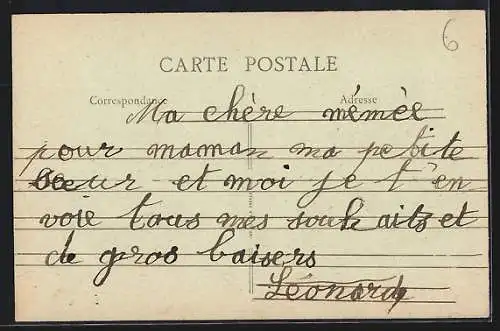 6
CARTE POSTALE
Correspondance Adresse
Ma chère mémèe
pour maman ma petite
soeur et moi je t'en
voie tous mes souhaits et
de gros baisers
Léonard